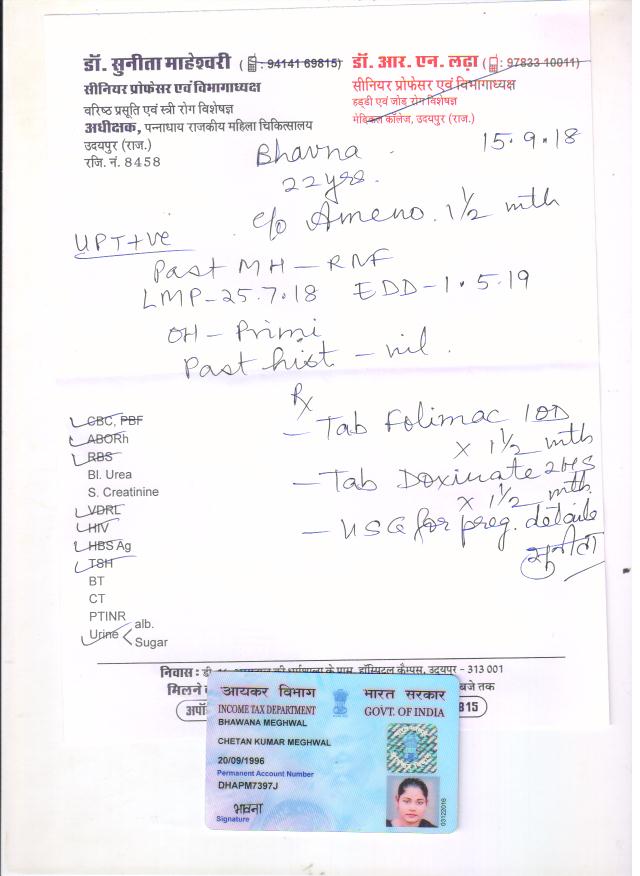 डॉ. सुनीता माहेश्वरी (: 94141 69815)
सीनियर प्रोफेसर एवं विभागाध्यक्ष
वरिष्ठ प्रसूति एवं स्त्री रोग विशेषज्ञ
अधीक्षक, पन्नाधाय राजकीय महिला चिकित्सालय
उदयपुर (राज.)
रजि. नं. 8458
डॉ. आर. एन. लढ़ा (: 97833 10011)
सीनियर प्रोफेसर एवं विभागाध्यक्ष
हड्डी एवं जोड़ रोग विशेषज्ञ
मेडिकल कॉलेज, उदयपुर (राज.)
15.9.18
Bhavna
22 yrs.
c/o Ameno. 1½ mth
UPT+ve
Past MH - RNF
LMP - 25.7.18 EDD - 1.5.19
OH - Primi
Past hist - nil.
Rx
- Tab Folimac 1OD
x 1½ mth
- Tab Doxinate 2HS
x 1½ mth.
- USG for preg. details
सुनीता
CBC, PBF
ABORh
RBS
Bl. Urea
S. Creatinine
VDRL
HIV
HBS Ag
TSH
BT
CT
PTINR
Urine < alb.
Sugar
निवास : डी हॉस्पिटल कैम्पस, उदयपुर - 313 001
मिलने बजे तक
815
आयकर विभाग भारत सरकार
INCOME TAX DEPARTMENT GOVT. OF INDIA
BHAWANA MEGHWAL
CHETAN KUMAR MEGHWAL
20/09/1996
Permanent Account Number
DHAPM7397J
भावना
Signature
03122016